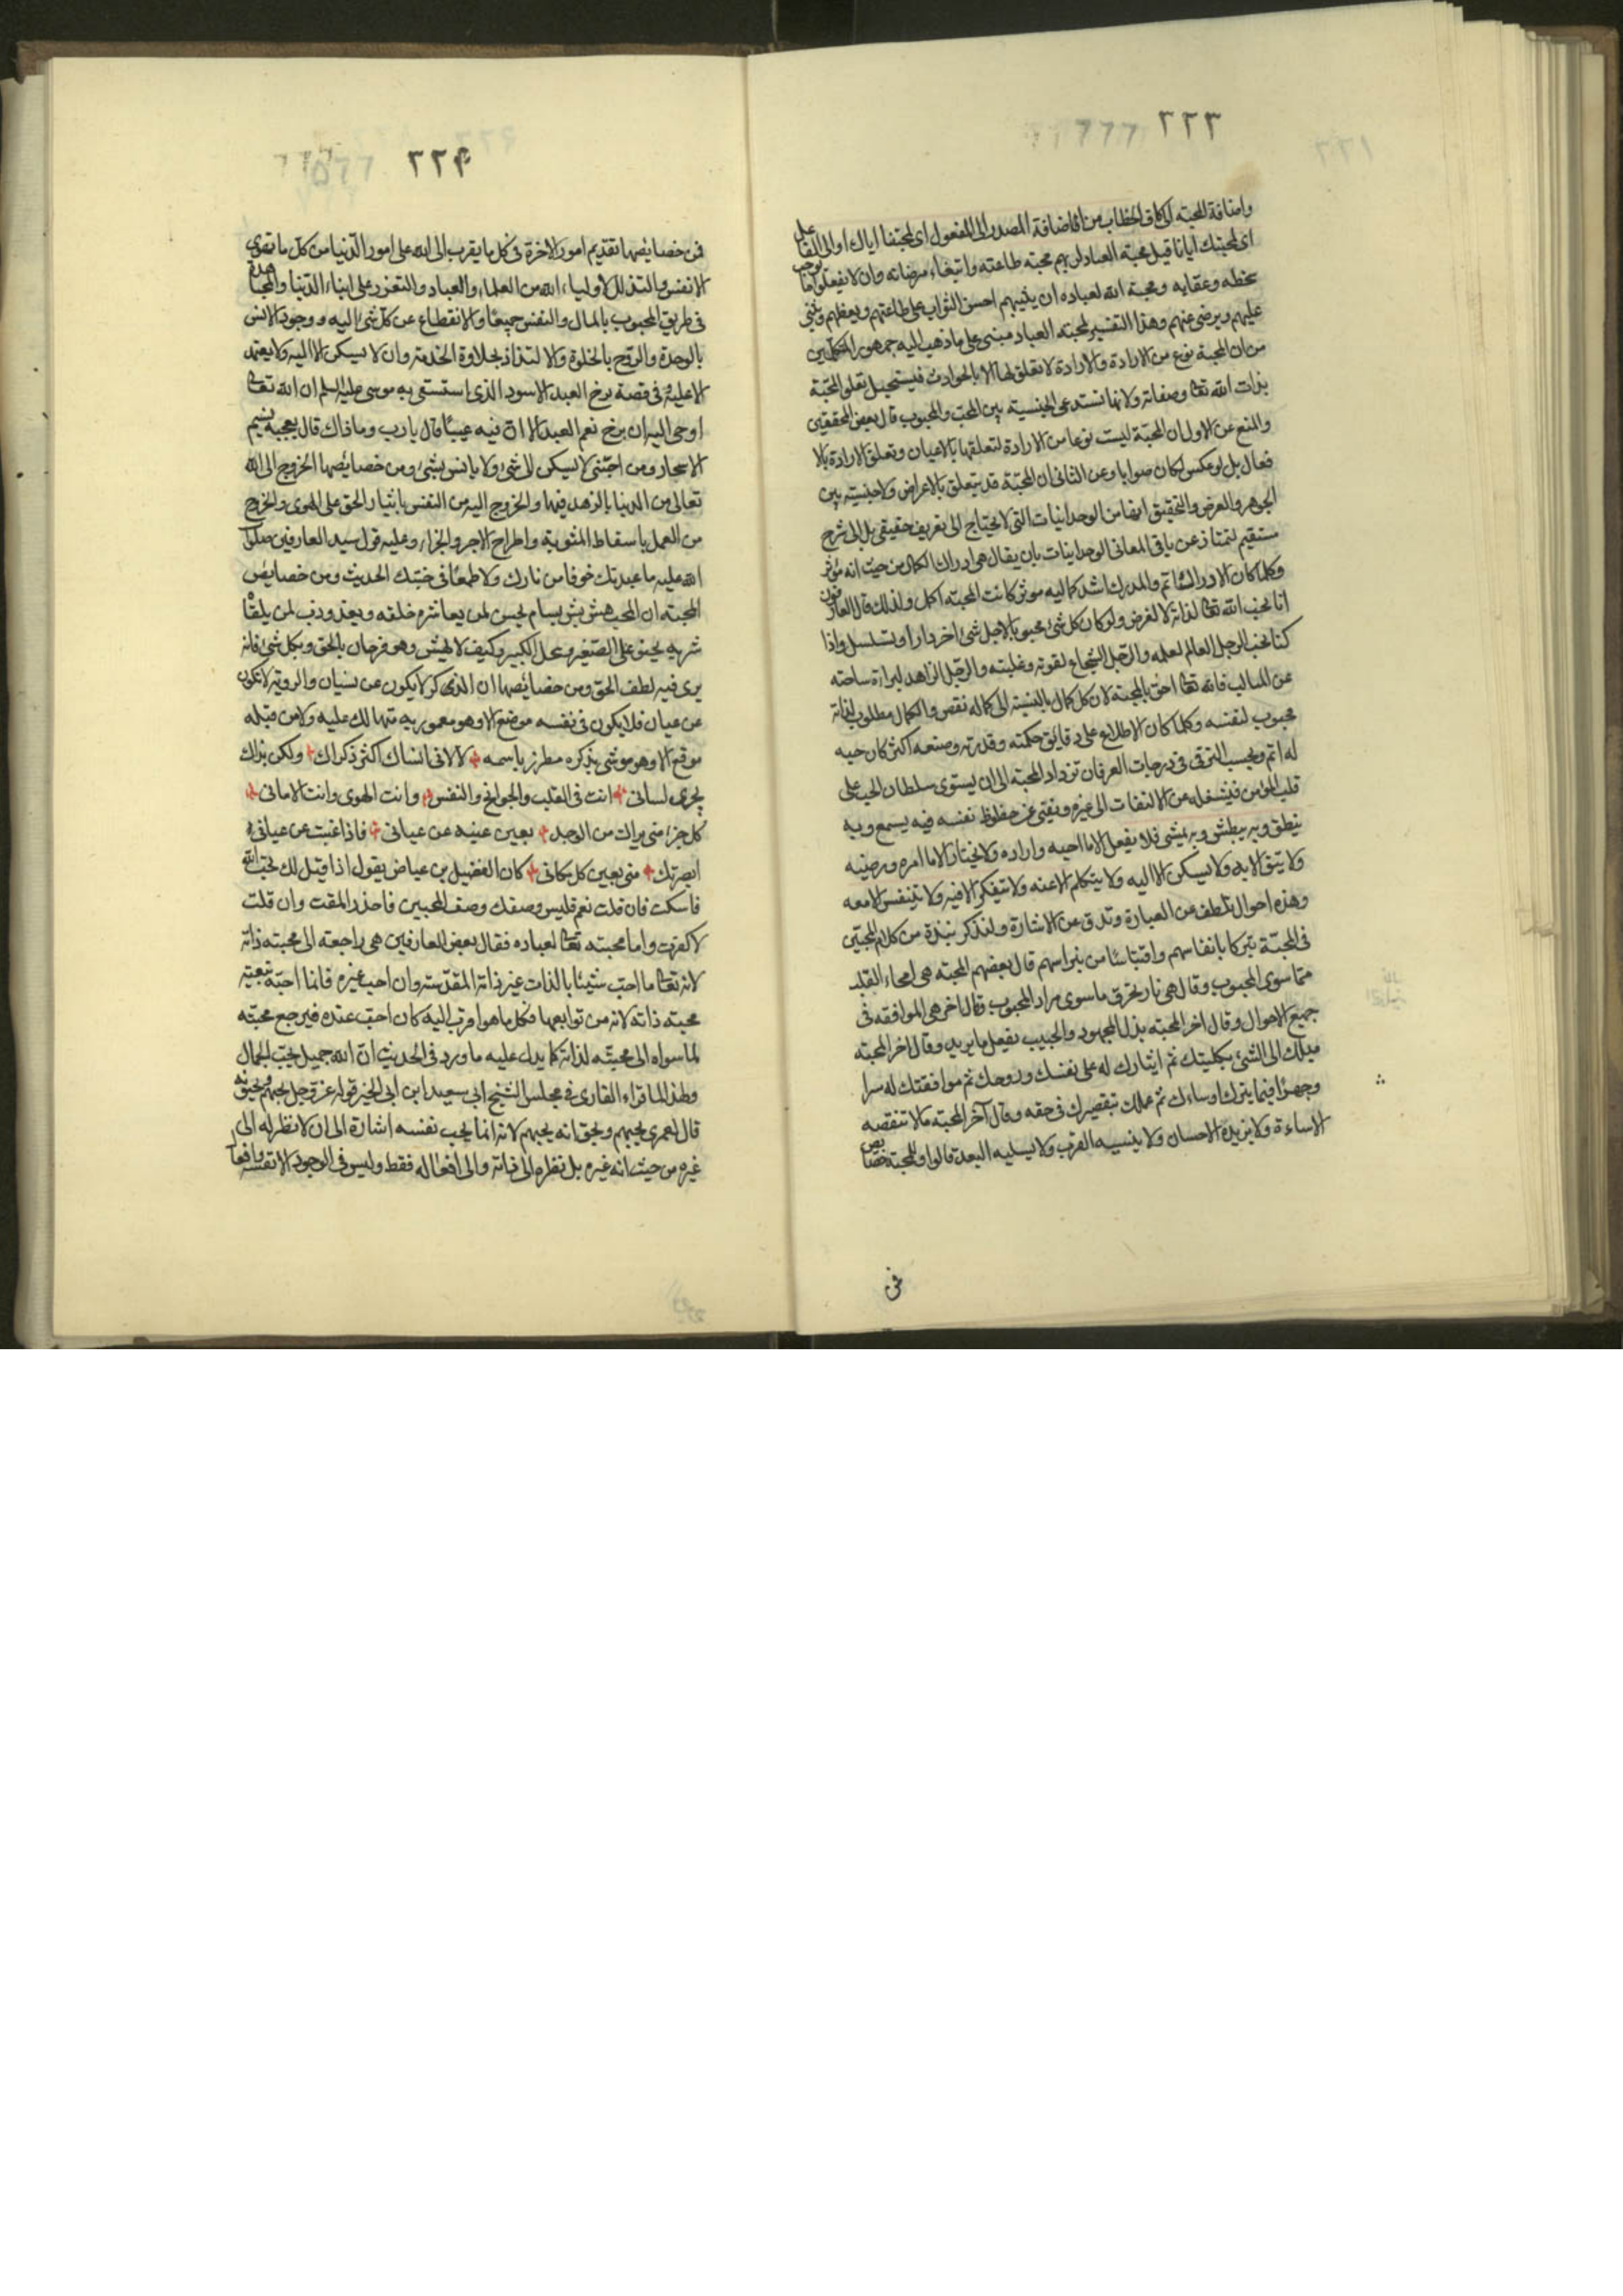 ٢٢٣
واضافة المحبته الى كاف الخطاب من اضافة المصدر الى المفعول اى لمحبتنا اياك او الى الفاعل
اى لمحبتك ايانا قيل محبة العباد لربهم محبته طاعته وابتغاء مرضاته وان لا يفعلوا ما يوجب
سخطه وعقابه ومحبة الله لعباده ان يثيبهم احسن الثواب على طاعتهم ويعظمهم ويثنى
عليهم ويرضى عنهم وهذا التفسير لمحبته العباد مبنى على ما ذهب اليه جمهور المتكلمين
من ان المحبة نوع من الارادة والارادة لا تعلق لها الا بالحوادث فيستحيل تعلق المحبّة
بذات الله تعا وصفاته ولانها تستدعى الجنسيته بين المحب والمحبوب قال بعض المحققين
والمنع عن الاول ان المحبّة ليست نوعا من الارادة لتعلقها بالاعيان وتعلق الارادة بالا
فعال بل لو عكس لكان صوابا وعن الثانى ان المحبّة قد يتعلق بالاعراض ولا جنسيته بين
الجوهر والعرض والتحقيق انها من الوجدانيات التى لا يحتاج الى تعريف حقيقى بل الى شرح
مستقيم لتمتاز عن باقى المعانى الوجدانيات بان يقال هى ادراك الكمال من حيث انه مؤثر
وكلما كان الادراك اتم والمدرك اشد كماليه موثر كانت المحبته اكمل ولذلك قال العارفون
انا نحب الله تعا لذاته لا لغرض ولو كان كل شئ محبوبا لاجل شئ اخر دار او تسلسل واذا
كنا نحب الرجل العالم لعلمه والرجل الشجاع لقوته وغلبته والرجل الزاهد لبراءة ساحته
عن المثالب فالله تعا احق بالمحبته لان كل كمال بالنسبته الى كماله نقص والكمال مطلوب لذاته
محبوب لنفسه وكلما كان الاطلاع على دقايق حكمته وقدرته وصنعه اكثر كان حبه
له اتم وبحسب الترقى فى درجات العرفان تزداد المحبته الى ان يستوى سلطان الحب على
قلب المؤمن فيشغله عن الالتفات الى غيره ويفنى عن حظوظ نفسه فبه يسمع وبه
ينطق وبه يبطش وبه يمشى فلا يفعل الا ما احبه واراده ولا يختار الا ما امره ورضيه
ولا يثق الا به ولا يسكن الا اليه ولا يتكلم الا عنه ولا يتفكر الا فيه ولا يتنفس الا معه
وهذه احوال تلطف عن العبارة وتدق عن الاشارة ولنذكر نبذة من كلام المحبّين
فى المحبّة تبركا بانفاسهم واقتباسًا من نبراسهم قال بعضهم المحبته هى امحاء القلب
عمّا سوى المحبوب وقال هى نار تحرق ما سوى مراد المحبوب وقال اخر هى الموافقه فى
جميع الاحوال وقال اخر المحبته بذل المجهود والحبيب يفعل ما يريد وقال اخر المحبته
ميلك الى الشئ بكليتك ثم ايثارك له على نفسك وروحك ثم موافقتك له سرا
وجهرًا فيما يسرك او ساءك ثم علمك بتقصيرك فى حقه وقال آخر المحبّة ما لا تنقصه
الاساءة ولا يزيده الاحسان ولا ينسيه القرب ولا يسليه البعد قالوا وللمحبته خصايص
فمن
٢٢٤
فمن خصايصها تقديم امور الاخرة فى كل ما يقرب الى الله على امور الدّنيا من كلّ ما تهوى
الانفس والتذلل لاولياء الله من العلماء والعباد والتعزز على ابناء الدّنيا والمجاهدة
فى طريق المحبوب بالمال والنفس جميعًا والانقطاع عن كلّ شئ اليه ووجود الانس
بالوحدة والروح بالخلوة والالتذاذ بحلاوة الخدمته وان لا يسكن الا اليه ولا يعتمد
الا عليه وفى قصة برخ العبد الاسود الذى استسقى به موسى عليه السلم ان الله تعا
اوحى اليه ان برخ نعم العبد الا انّ فيه عيبًا قال يا رب وما ذاك قال يعجبه نسيم
الاسحار ومن احبّنى لا يسكن الى شئ ولا يانس بشئ ومن خصايصها الخروج الى الله
تعالى من الدنيا بالزهد فيها والخروج اليه من النفس بايثار الحق على الهوى والخروج
من العمل باسقاط المثوبته واطراح الاجر والجزاء وعليه قول سيد العارفين صلوات
الله عليه ما عبدتك خوفا من نارك ولا طمعًا فى جنّتك الحديث ومن خصايص
المحبته ان المحب هش بش بسام يحسن لمن يعاشره خلقه ويعذودب لمن يلقاه
شربه يحنو على الصّغير ويبجل الكبير وكيف لا يهش وهو فرحان بالحق وبكل شئ فانه
يرى فيه لطف الحق ومن خصايصها ان الذكر لا يكون عن نسيان والرويته لا يكون
عن عيان فلا يكون فى نفسه موضع الا وهو معمور به متهالك عليه ولا من قبله
موقع الا وهو موشى بذكره مطرز باسمه لا لانى انساك اكثر ذكراك ولكن بذاك
يجرى لسانى انت فى القلب والجوانح والنفس وانت الهوى وانت الامانى
كل جزء منى يراك من الوجد بعين غنيه عن عيانى فاذا غبت عن عيانى
ابصرتك منى بعين كل مكانى كان الفضيل بن عياض يقول اذا قيل لك تحب الله
فاسكت فان قلت نعم فليس وصفك وصف المحبين فاحذر المقت وان قلت
لا كفرت واما محبته تعا لعباده فقال بعض العارفين هى راجعته الى محبته ذاته
لانه تعا ما احب شيئا بالذات غير ذاته المقدّسته وان احب غيره فانما احبّه بتبعيته
محبته ذاته لانه من توابعها فكل ما هو اقرب اليه كان احبّ عنده فيرجع محبّته
لما سواه الى محبّته لذاته كما يدل عليه ما ورد فى الحديث انّ الله جميل يحبّ الجمال
ولهذا لما قراء القارى فى مجلس الشيخ ابى سعيد ابن ابى الخير قوله عز وجل يحبهم ويحبونه
قال لعمرى يحبهم وبحق انه يحبهم لانه انما يحب نفسه اشارة الى ان لا نظر له الى
غيره من حيث انه غيره بل نظره الى ذاته والى افعاله فقط وليس فى الوجود الا نفسه وافعاله